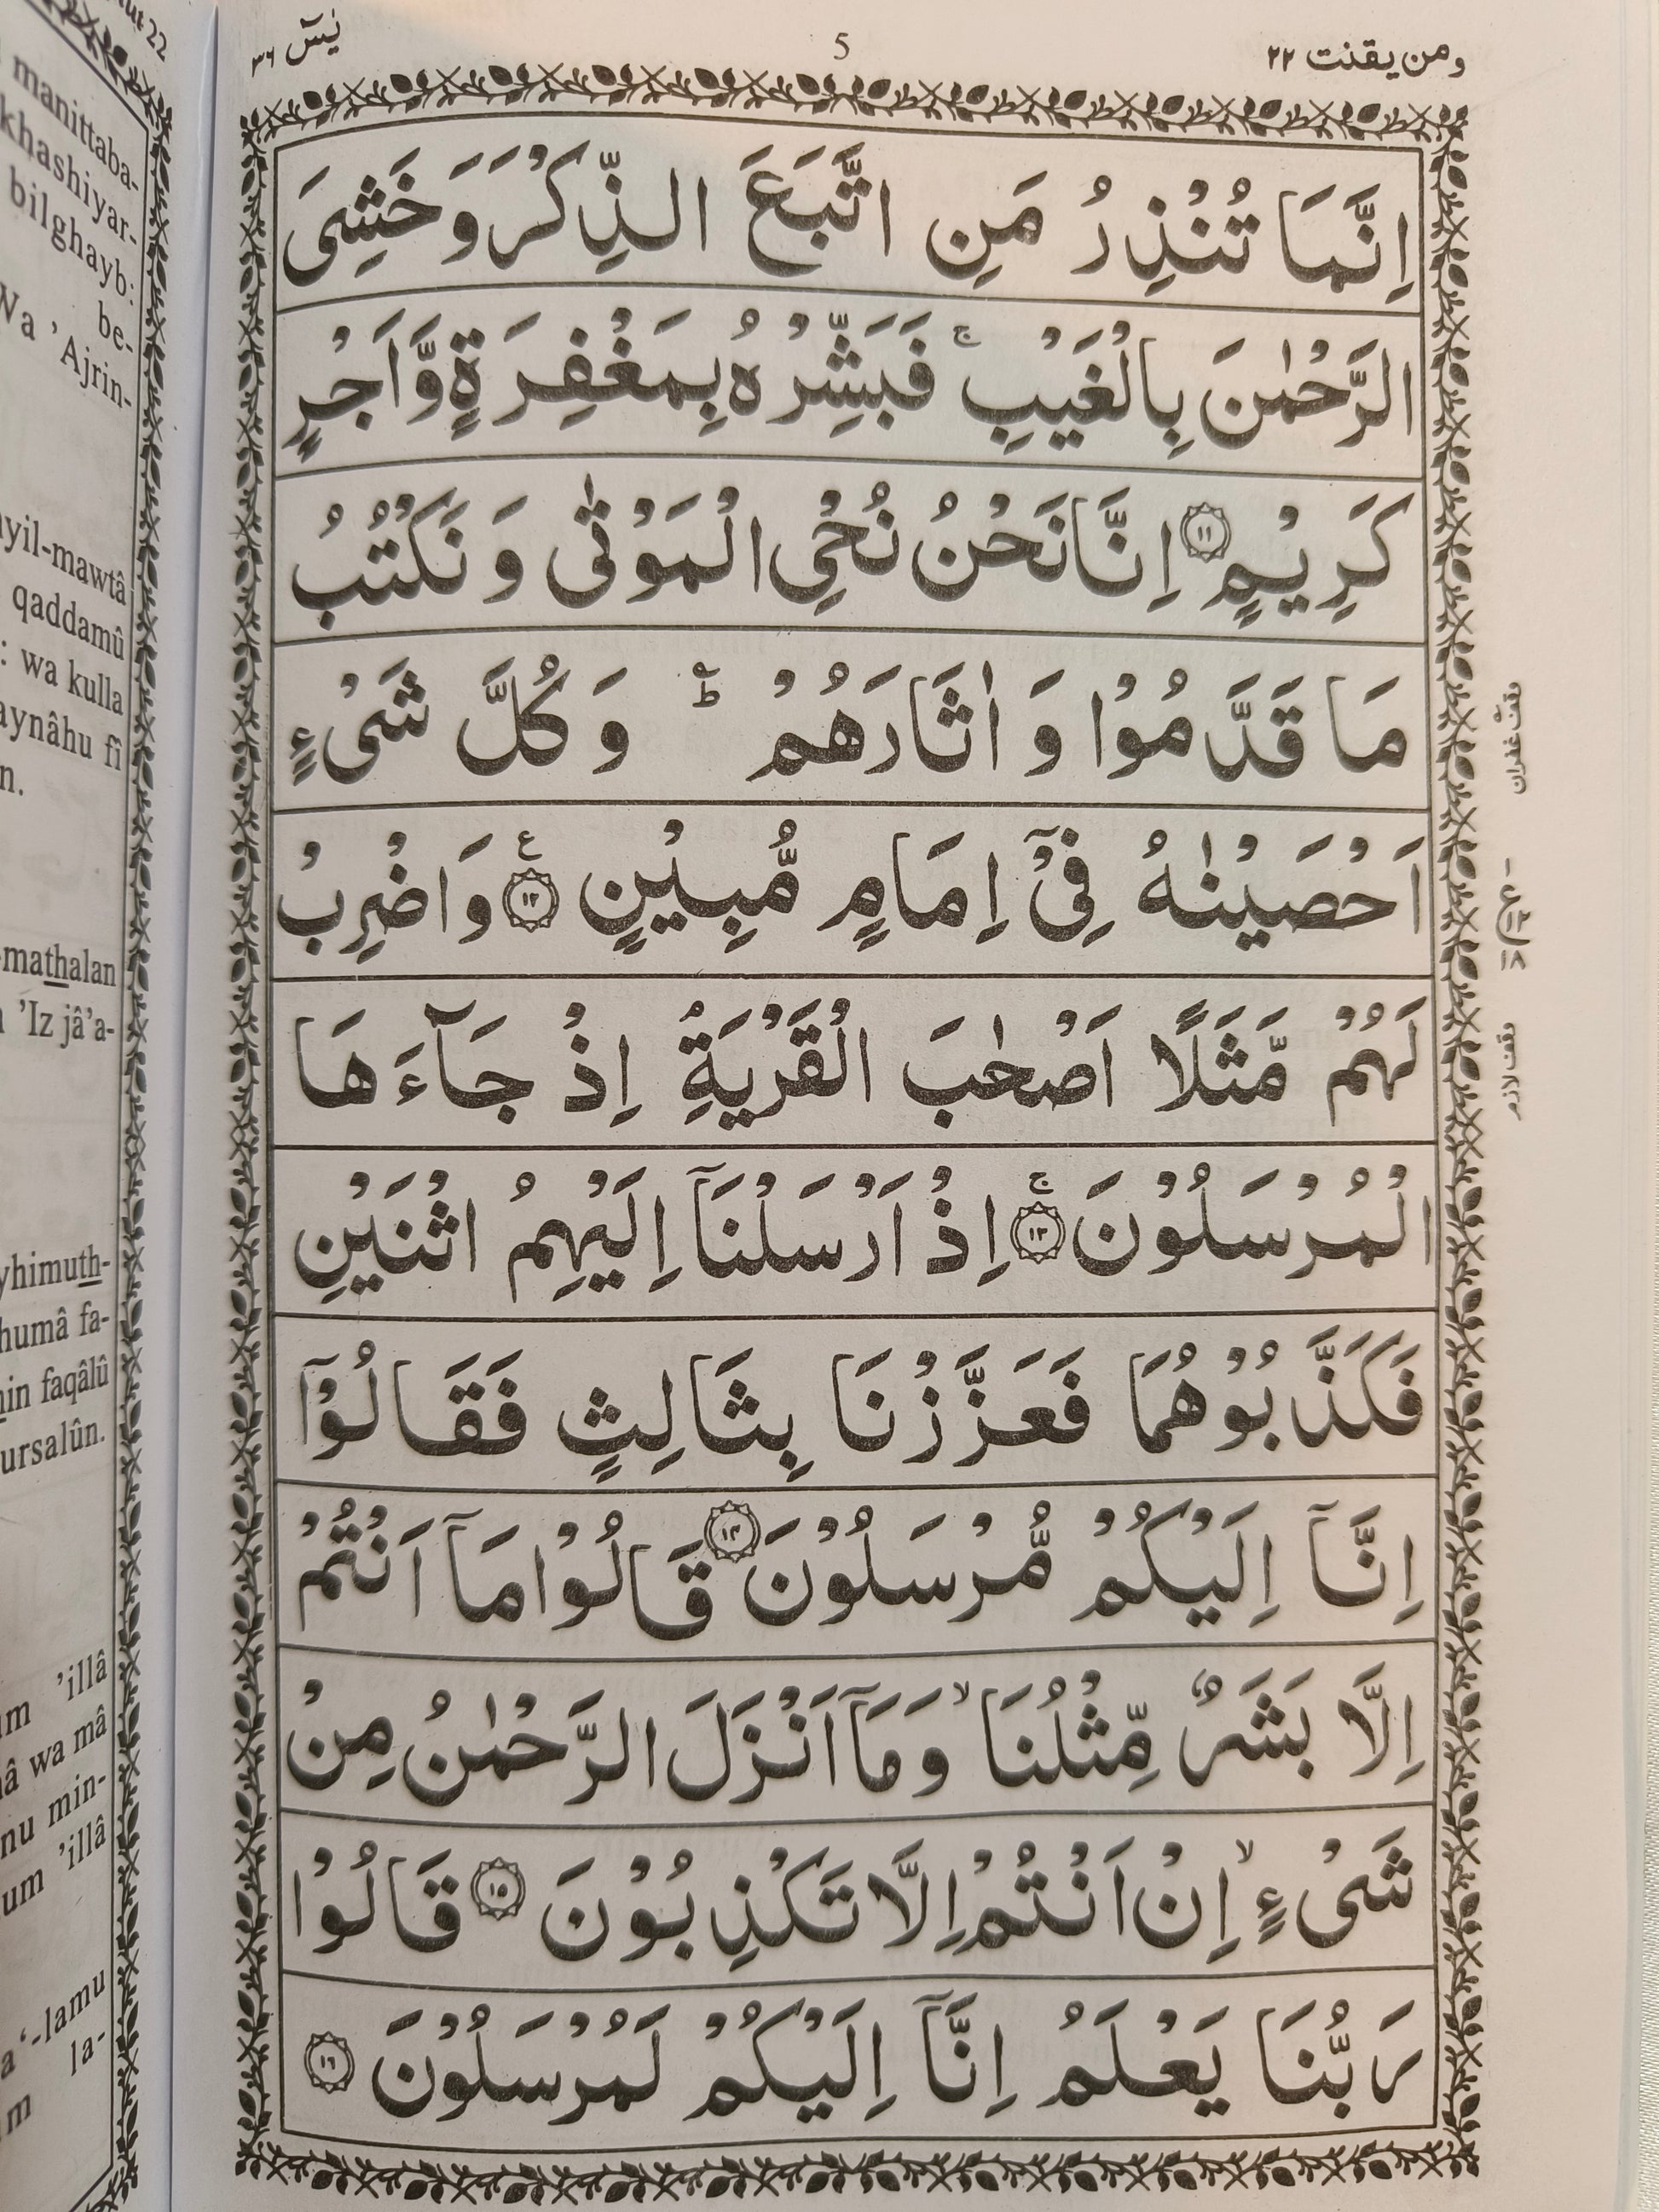 ومن يقنت ٢٢
5
يٰسٓ ٣٦
اِنَّمَا تُنْذِرُ مَنِ اتَّبَعَ الذِّكْرَ وَخَشِىَ
الرَّحْمٰنَ بِالْغَيْبِ ۚ فَبَشِّرْهُ بِمَغْفِرَةٍ وَّاَجْرٍ
كَرِيْمٍ ١١ اِنَّا نَحْنُ نُحْىِ الْمَوْتٰى وَ نَكْتُبُ
مَا قَدَّمُوْا وَ اٰثَارَهُمْ ؕ وَ كُلَّ شَىْءٍ
اَحْصَيْنٰهُ فِىْٓ اِمَامٍ مُّبِيْنٍ ١٢ ع وَاضْرِبْ
لَهُمْ مَّثَلًا اَصْحٰبَ الْقَرْيَةِ اِذْ جَآءَهَا
الْمُرْسَلُوْنَ ١٣ ۚ اِذْ اَرْسَلْنَآ اِلَيْهِمُ اثْنَيْنِ
فَكَذَّبُوْهُمَا فَعَزَّزْنَا بِثَالِثٍ فَقَالُوْٓا
اِنَّآ اِلَيْكُمْ مُّرْسَلُوْنَ ١٤ قَالُوْا مَآ اَنْتُمْ
اِلَّا بَشَرٌ مِّثْلُنَا ۙ وَمَآ اَنْزَلَ الرَّحْمٰنُ مِنْ
شَىْءٍ ۙ اِنْ اَنْتُمْ اِلَّا تَكْذِبُوْنَ ١٥ قَالُوْا
رَبُّنَا يَعْلَمُ اِنَّآ اِلَيْكُمْ لَمُرْسَلُوْنَ ١٦
وقف غفران
وقف لازم
22
manittaba-
khashiyar-
bilghayb:
be-
Wa ’Ajrin-
yil-mawtâ
qaddamû
: wa kulla
aynâhu fî
n.
-mathalan
’Iz jâ’a-
yhimuth-
humâ fa-
in faqâlû
ursalûn.
um ’illâ
â wa mâ
nu min-
um ’illâ
a‘-lamu
la-
m